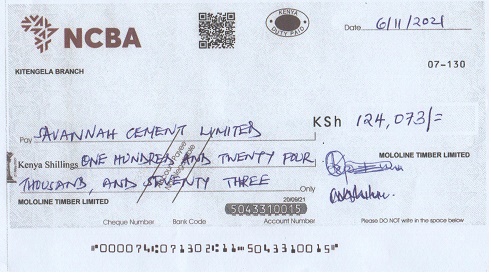 NCBA
KENYA
DUTY PAID
Date 6/11/2021
KITENGELA BRANCH
07-130
Pay SAVANNAH CEMENT LIMITED KSh 124,073/=
Kenya Shillings ONE HUNDRED AND TWENTY FOUR
THOUSAND, AND SEVENTY THREE Only
MOLOLINE TIMBER LIMITED
MOLOLINE TIMBER LIMITED
20/09/21
5043310015
Cheque Number Bank Code Account Number Please DO NOT write in the space below
"000074:071302:11=5043310015"